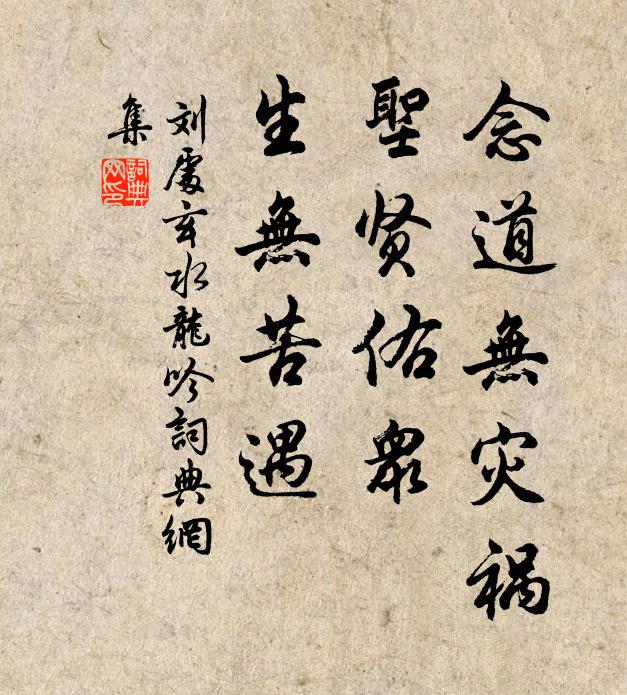 念道無灾祸
聖贤佑衆
生無苦遇
刘處玄水龍吟詞典網
集
詞典
网印